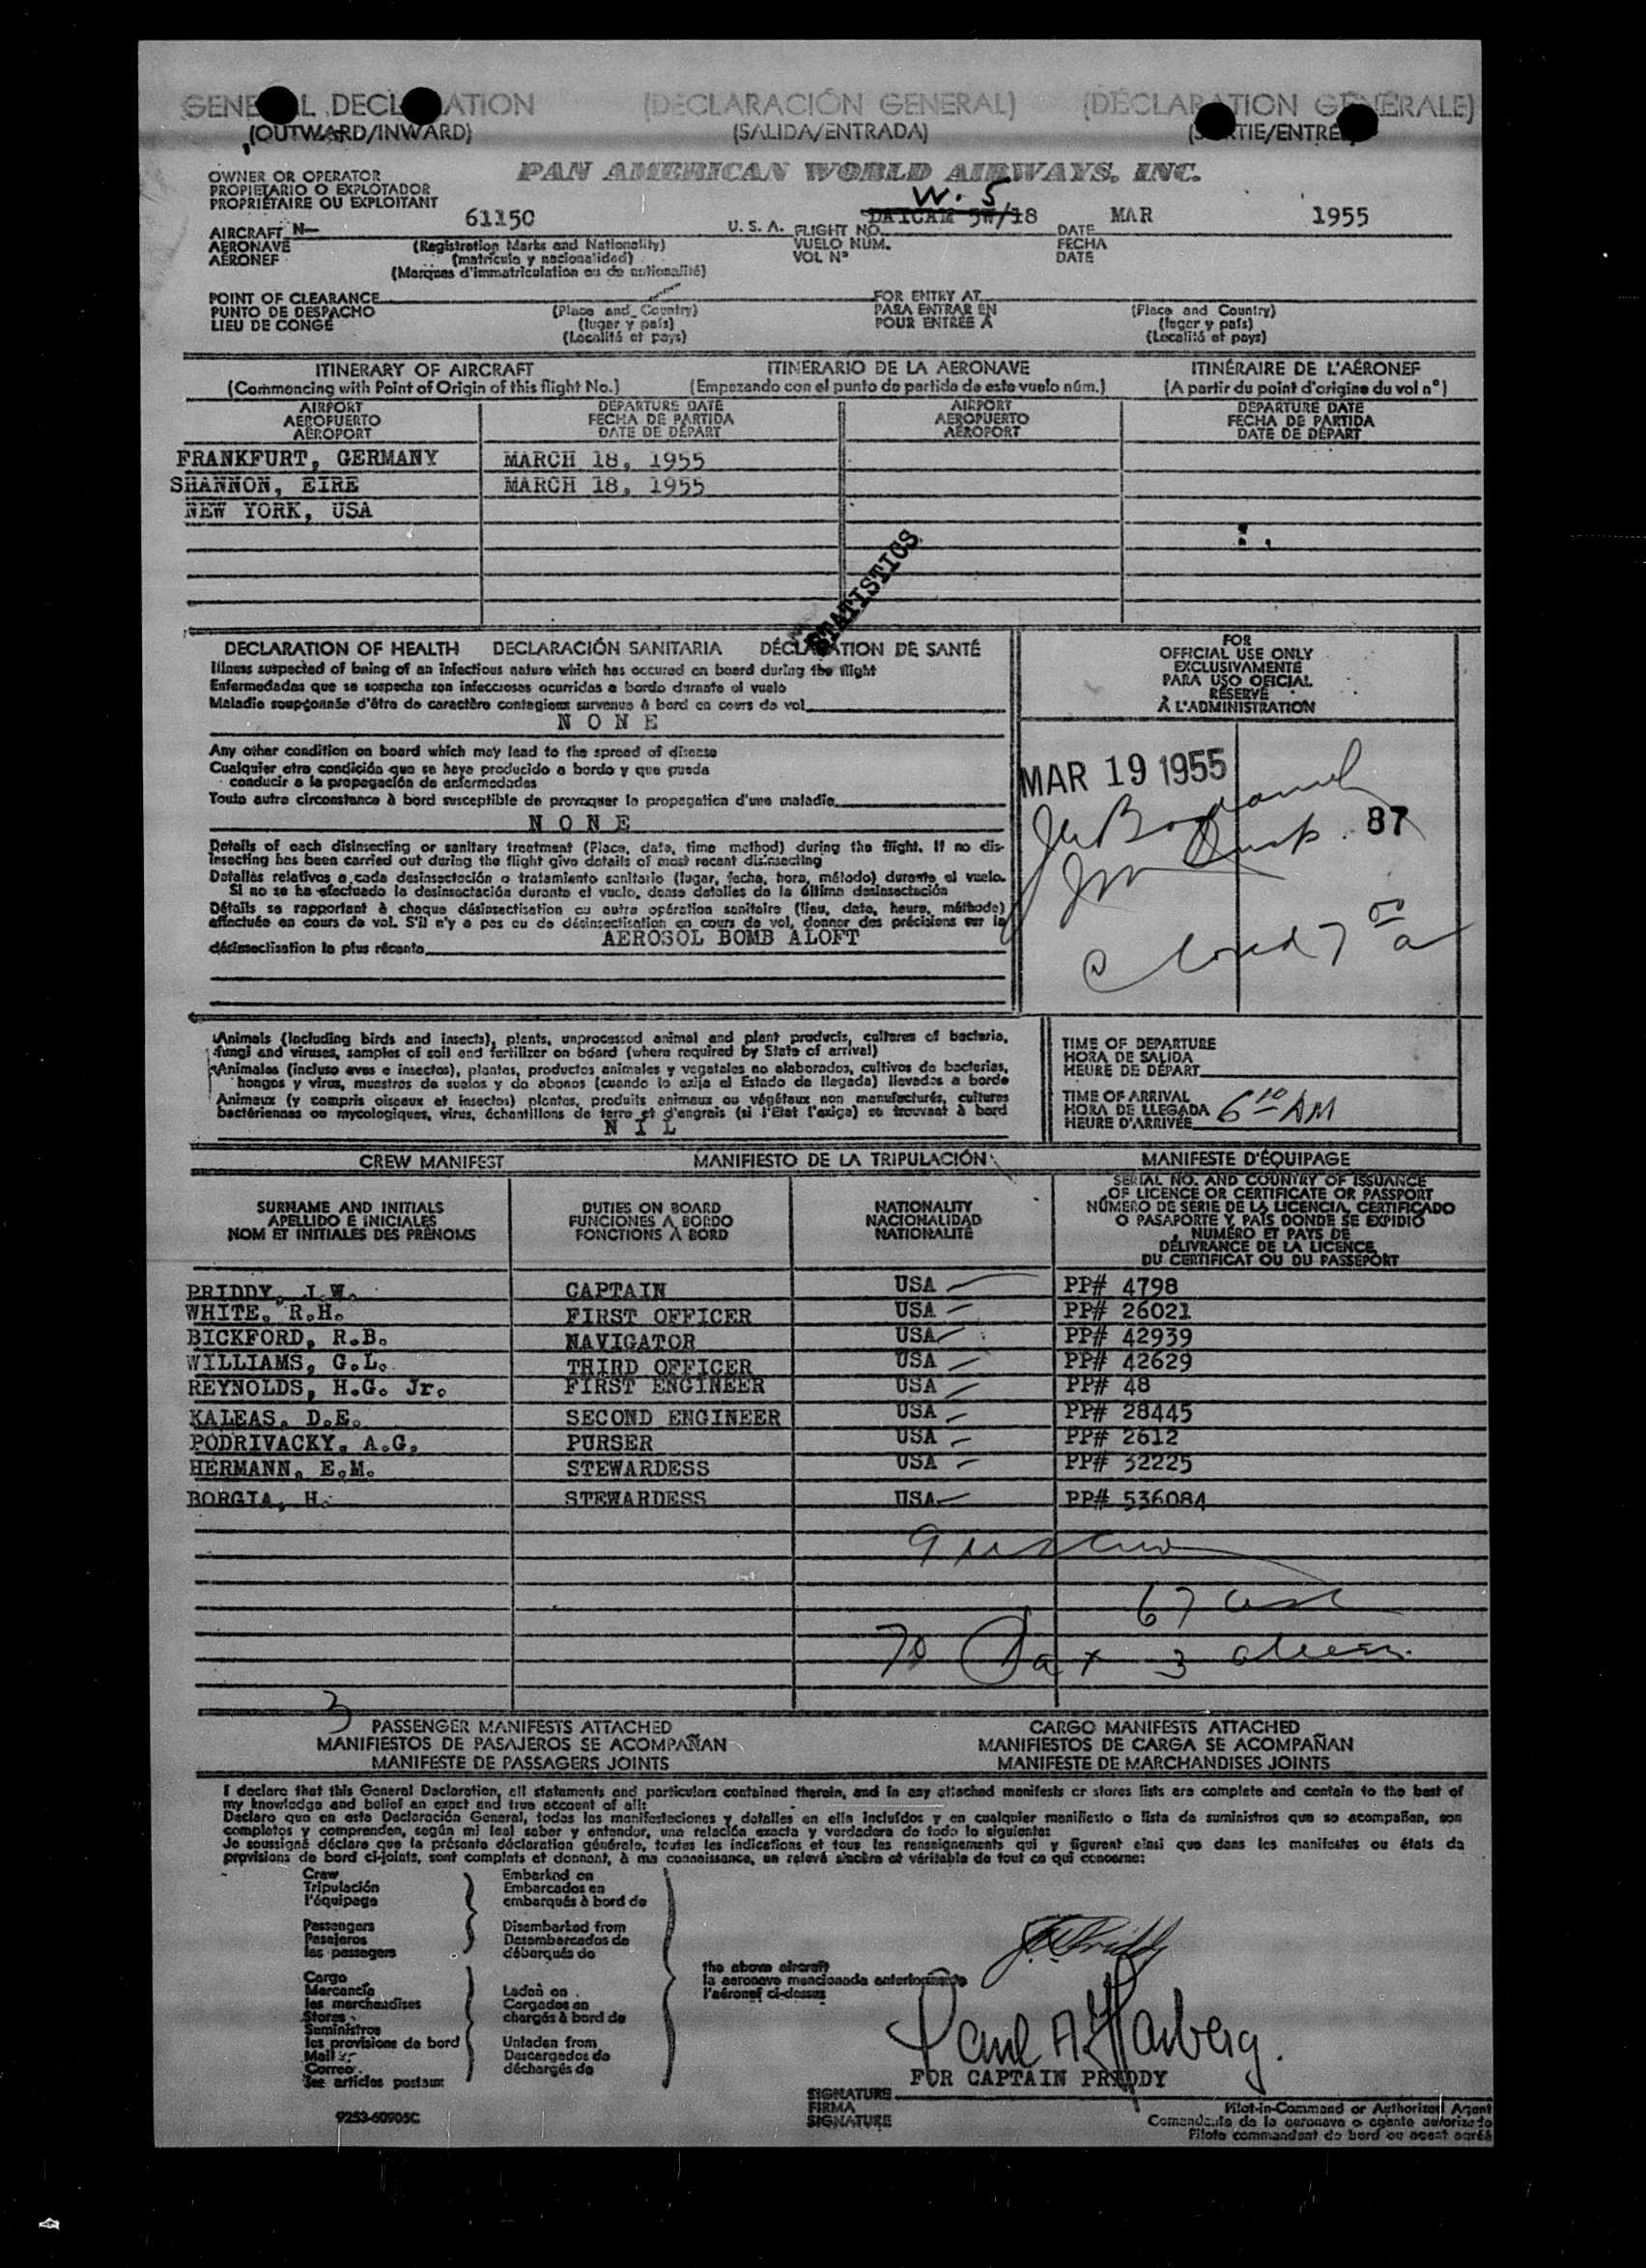 GENERAL DECLARATION (DECLARACIÓN GENERAL) (DÉCLARATION GÉNÉRALE)
(OUTWARD/INWARD) (SALIDA/ENTRADA) (SORTIE/ENTRÉE)
OWNER OR OPERATOR PAN AMERICAN WORLD AIRWAYS, INC.
PROPIETARIO O EXPLOTADOR
PROPRIÉTAIRE OU EXPLOITANT
W. 5
AIRCRAFT N- 61150 U. S. A. FLIGHT NO. 5W/18 DATE MAR 1955
AERONAVE (Registration Marks and Nationality) VUELO NUM. FECHA
AÉRONEF (matrícula y nacionalidad) VOL Nº DATE
(Marques d'immatriculation ou de nationalité)
POINT OF CLEARANCE FOR ENTRY AT
PUNTO DE DESPACHO (Place and Country) PARA ENTRAR EN (Place and Country)
LIEU DE CONGÉ (lugar y país) POUR ENTRÉE A (lugar y país)
(Localité et pays) (Localité et pays)
ITINERARY OF AIRCRAFT ITINERARIO DE LA AERONAVE ITINÉRAIRE DE L'AÉRONEF
(Commencing with Point of Origin of this flight No.) (Empezando con el punto de partida de este vuelo núm.) (A partir du point d'origine du vol nº)
AIRPORT DEPARTURE DATE AIRPORT DEPARTURE DATE
AEROPUERTO FECHA DE PARTIDA AEROPUERTO FECHA DE PARTIDA
AÉROPORT DATE DE DÉPART AÉROPORT DATE DE DÉPART
FRANKFURT, GERMANY MARCH 18, 1955
SHANNON, EIRE MARCH 18, 1955
NEW YORK, USA
STATISTICS
DECLARATION OF HEALTH DECLARACIÓN SANITARIA DÉCLARATION DE SANTÉ
Illness suspected of being of an infectious nature which has occured on board during the flight
Enfermedades que se sospecha son infecciosas ocurridas a bordo durante el vuelo
Maladie soupçonnée d'être de caractère contagieux survenue à bord en cours de vol
NONE
Any other condition on board which may lead to the spread of disease
Cualquier otra condición que se haya producido a bordo y que pueda
conducir a la propagación de enfermedades
Toute autre circonstance à bord susceptible de provoquer la propagation d'une maladie
NONE
Details of each disinsecting or sanitary treatment (Place, date, time method) during the flight. If no dis-
insecting has been carried out during the flight give details of most recent disinsecting
Detalles relativos a cada desinsectación o tratamiento sanitario (lugar, fecha, hora, método) durante el vuelo.
Si no se ha efectuado la desinsectación durante el vuelo, dense detalles de la última desinsectación
Détails se rapportant à chaque désinsectisation ou autre opération sanitaire (lieu, date, heure, méthode)
effectuée en cours de vol. S'il n'y a pas eu de désinsectisation en cours de vol, donner des précisions sur la
désinsectisation la plus récente AEROSOL BOMB ALOFT
FOR
OFFICIAL USE ONLY
EXCLUSIVAMENTE
PARA USO OFICIAL
RÉSERVÉ
À L'ADMINISTRATION
MAR 19 1955
87
Animals (Including birds and insects), plants, unprocessed animal and plant products, cultures of bacteria,
fungi and viruses, samples of soil and fertilizer on board (where required by State of arrival)
Animales (incluso aves e insectos), plantas, productos animales y vegetales no elaborados, cultivos de bacterias,
hongos y virus, muestras de suelos y de abonos (cuando lo exija el Estado de llegada) llevados a bordo
Animaux (y compris oiseaux et insectos) plantes, produits animaux ou végétaux non manufacturés, cultures
bactériennes ou mycologiques, virus, échantillons de terre et d'engrais (si l'Etat l'exige) se trouvant à bord
NIL
TIME OF DEPARTURE
HORA DE SALIDA
HEURE DE DÉPART
TIME OF ARRIVAL
HORA DE LLEGADA 6 10 AM
HEURE D'ARRIVÉE
CREW MANIFEST MANIFIESTO DE LA TRIPULACIÓN MANIFESTE D'ÉQUIPAGE
SURNAME AND INITIALS DUTIES ON BOARD NATIONALITY SERIAL NO. AND COUNTRY OF ISSUANCE
APELLIDO E INICIALES FUNCIONES A BORDO NACIONALIDAD OF LICENCE OR CERTIFICATE OR PASSPORT
NOM ET INITIALES DES PRÉNOMS FONCTIONS À BORD NATIONALITÉ NÚMERO DE SERIE DE LA LICENCIA, CERTIFICADO
O PASAPORTE Y PAÍS DONDE SE EXPIDIÓ
NUMÉRO ET PAYS DE
DÉLIVRANCE DE LA LICENCE
DU CERTIFICAT OU DU PASSEPORT
PRIDDY, J.W. CAPTAIN USA PP# 4798
WHITE, R.H. FIRST OFFICER USA PP# 26021
BICKFORD, R.B. NAVIGATOR USA PP# 42939
WILLIAMS, G.L. THIRD OFFICER USA PP# 42629
REYNOLDS, H.G. Jr. FIRST ENGINEER USA PP# 48
KALEAS, D.E. SECOND ENGINEER USA PP# 28445
PODRIVACKY, A.G. PURSER USA PP# 2612
HERMANN, E.M. STEWARDESS USA PP# 32225
BORGIA, H. STEWARDESS USA PP# 536084
67
70 Pax 3
3
PASSENGER MANIFESTS ATTACHED CARGO MANIFESTS ATTACHED
MANIFIESTOS DE PASAJEROS SE ACOMPAÑAN MANIFIESTOS DE CARGA SE ACOMPAÑAN
MANIFESTE DE PASSAGERS JOINTS MANIFESTE DE MARCHANDISES JOINTS
I declare that this General Declaration, all statements and particulars contained therein, and in any attached manifests or stores lists are complete and contain to the best of
my knowledge and belief an exact and true account of all:
Declaro que en esta Declaración General, todas las manifestaciones y detalles en ella incluídos y en cualquier manifiesto o lista de suministros que se acompañan, son
completos y comprenden, según mi leal saber y entender, una relación exacta y verdadera de todo lo siguiente:
Je soussigné déclare que la présente déclaration générale, toutes les indications et tous les renseignements qui y figurent ainsi que dans les manifestes ou états de
provisions de bord ci-joints, sont complets et donnent, à ma connaissance, un relevé sincère et véritable de tout ce qui concerne:
Crew Embarked on
Tripulación Embarcados en
l'équipage embarqués à bord de
Passengers Disembarked from
Pasajeros Desembarcados de
les passagers débarqués de
the above aircraft
la aeronave mencionada anteriormente
l'aéronef ci-dessus
Cargo
Mercancía Laden on
les marchandises Cargados en
Stores chargés à bord de
Suministros
les provisions de bord Unladen from
Mail Descargados de
Correo déchargés de
les articles postaux
Paul A. Harberg.
FOR CAPTAIN PRIDDY
SIGNATURE
FIRMA
SIGNATURE
Pilot-in-Command or Authorized Agent
Comandante de la aeronave o agente autorizado
Pilote commandant de bord ou agent agréé
9253-60905C